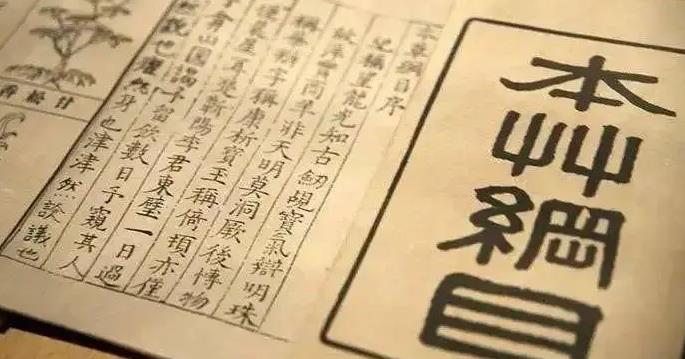 本艸綱目
本草綱目序
紀稱望龍光知古劒覘寶氣辯明珠
故萍實商羊非天明莫洞厥後博物
稱華辯字稱康析寶玉稱倚頓亦僅
僅晨星耳楚蘄陽李君東璧一日過
予弇山園謁予留飲數日予窺其人
然貌也癯然身也津津然談議也
甘松香